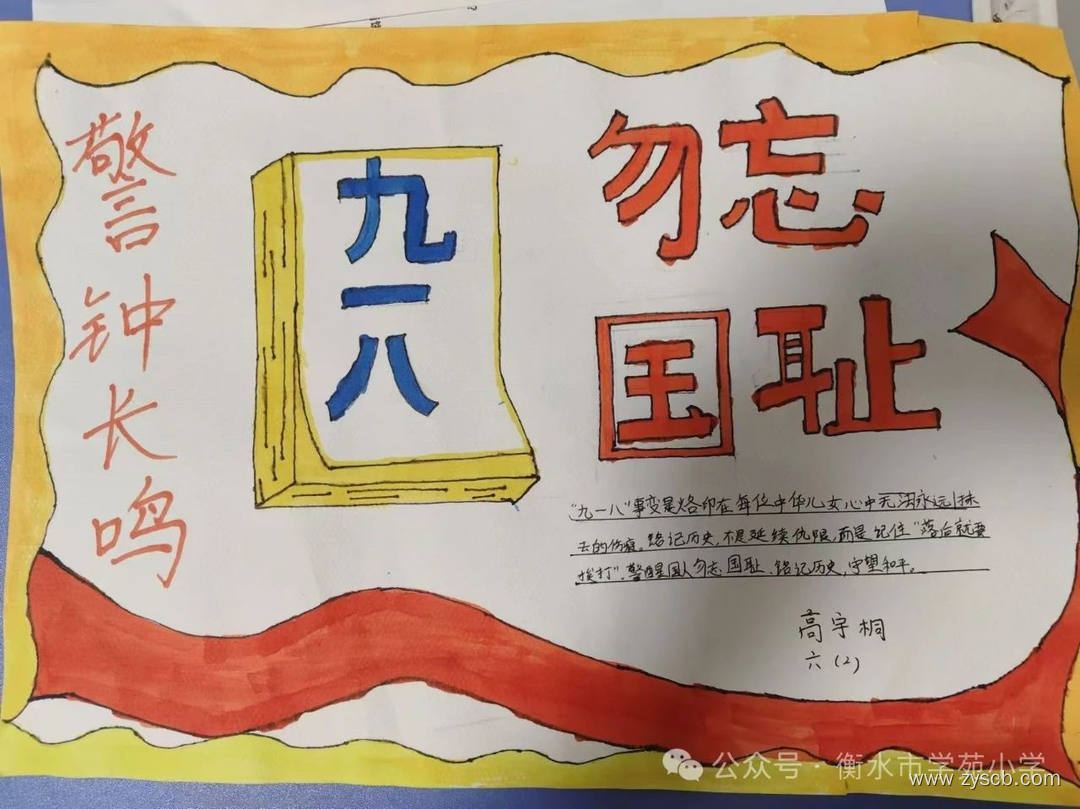 警钟长鸣
九一八
勿忘
国耻
"九一八"事变是烙印在每位中华儿女心中无法永远抹
去的伤痕。铭记历史,不是延续仇恨,而是记住"落后就要
挨打",警醒国人勿忘国耻、铭记历史,守望和平。
高宇桐
六(2)
公众号·衡水市学苑小学
www.zyscb.com